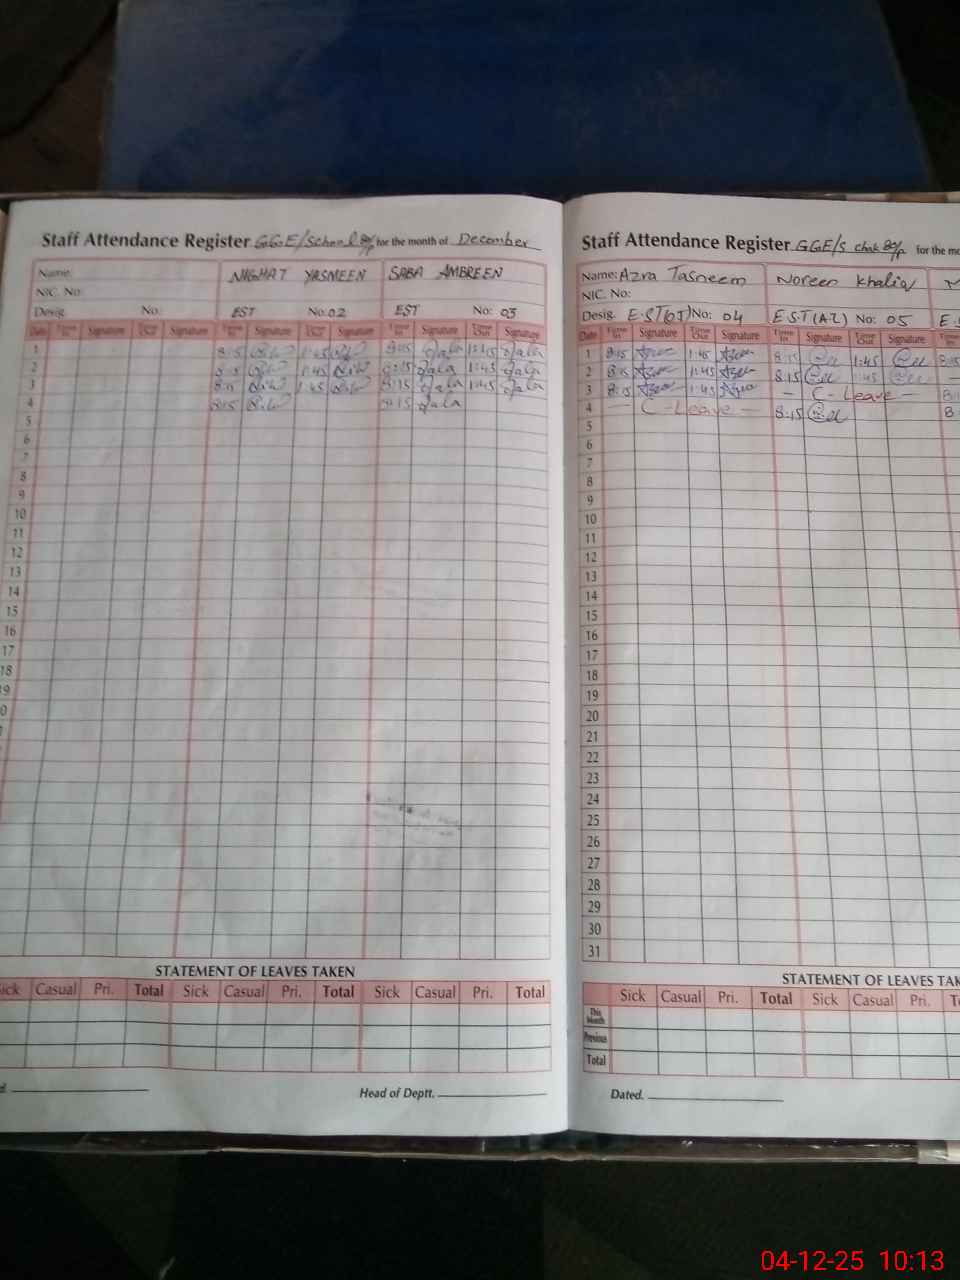 Staff Attendance Register GGE/School 80/P for the month of December
Name: NIGHAT YASMEEN SABA AMBREEN
NIC. No:
Desig. No: EST No: 02 EST No: 03
Date Time In Signature Time Out Signature Time In Signature Time Out Signature Time In Signature Time Out Signature
1 8:15 1:45 8:15 1:45
2 8:15 1:45 8:15 1:45
3 8:15 1:45 8:15 1:45
4 8:15 8:15
5
6
7
8
9
10
11
12
13
14
15
16
17
18
19
STATEMENT OF LEAVES TAKEN
Sick Casual Pri. Total Sick Casual Pri. Total Sick Casual Pri. Total
Head of Deptt.
Staff Attendance Register GGE/S chak 80/P for the
Name: Azra Tasneem Noreen Khaliq
NIC. No:
Desig. No: 04 E.S.T No: 05
Date Time In Signature Time Out Signature Time In Signature Time Out Signature
1 8:15 1:45 8:15 1:45
2 8:15 1:45 8:15 1:45
3 8:15 1:45 — C-Leave —
4 — C-Leave — 8:15
5
6
7
8
9
10
11
12
13
14
15
16
17
18
19
20
21
22
23
24
25
26
27
28
29
30
31
STATEMENT OF LEAVES
Sick Casual Pri. Total Sick Casual Pri.
This Month
Previous
Total
Dated.
04-12-25 10:13